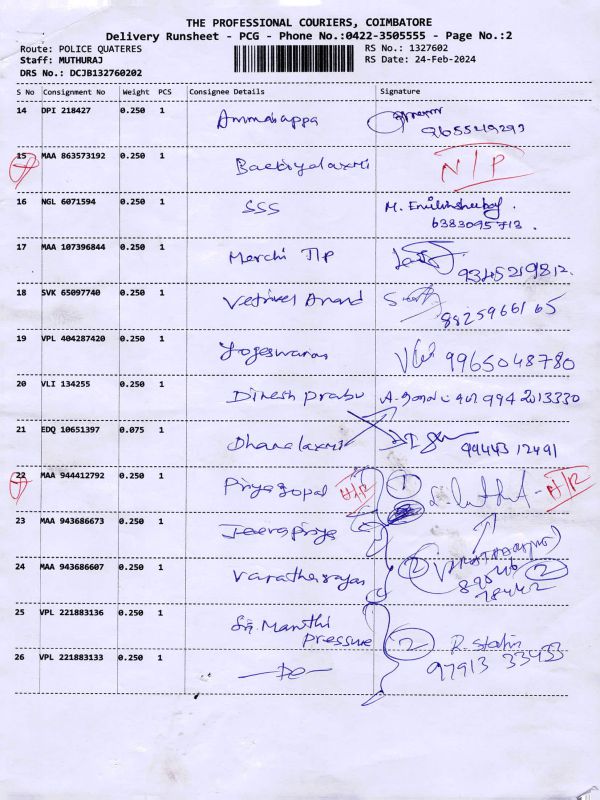 THE PROFESSIONAL COURIERS, COIMBATORE
Delivery Runsheet - PCG - Phone No.:0422-3505555 - Page No.:2
Route: POLICE QUATERES RS No.: 1327602
Staff: MUTHURAJ RS Date: 24-Feb-2024
DRS No.: DCJB132760202
S No Consignment No Weight PCS Consignee Details Signature
14 DPI 218427 0.250 1 Ammahappa
9655549293
15 MAA 863573192 0.250 1 N/P
16 NGL 6071594 0.250 1 SSS M.
6383095713.
17 MAA 107396844 0.250 1 Merchi Tlp 9345219812.
18 SVK 65097740 0.250 1 Vetrivel Anand
8825966165
19 VPL 404287420 0.250 1 Yogeswaran 9965048780
20 VLI 134255 0.250 1 Dinesh prabu 994 2013330
21 EDQ 10651397 0.075 1 Dhanalaxmi 99443 12491
22 MAA 944412792 0.250 1 Priya gopal N/R 1 N/R
23 MAA 943686673 0.250 1
24 MAA 943686607 0.250 1 Varatharajan 2 2
25 VPL 221883136 0.250 1 Sri. Manthi
Pressure 2 R. Stalin
97913 33433
26 VPL 221883133 0.250 1 -Do-